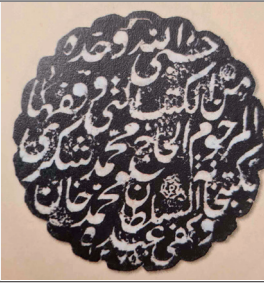 حسبي الله وحده
من الكتب التي وقفها
المرحوم الحاج محمد شكري
بكتبخانه السلطان محمد خان
وكفى عبده